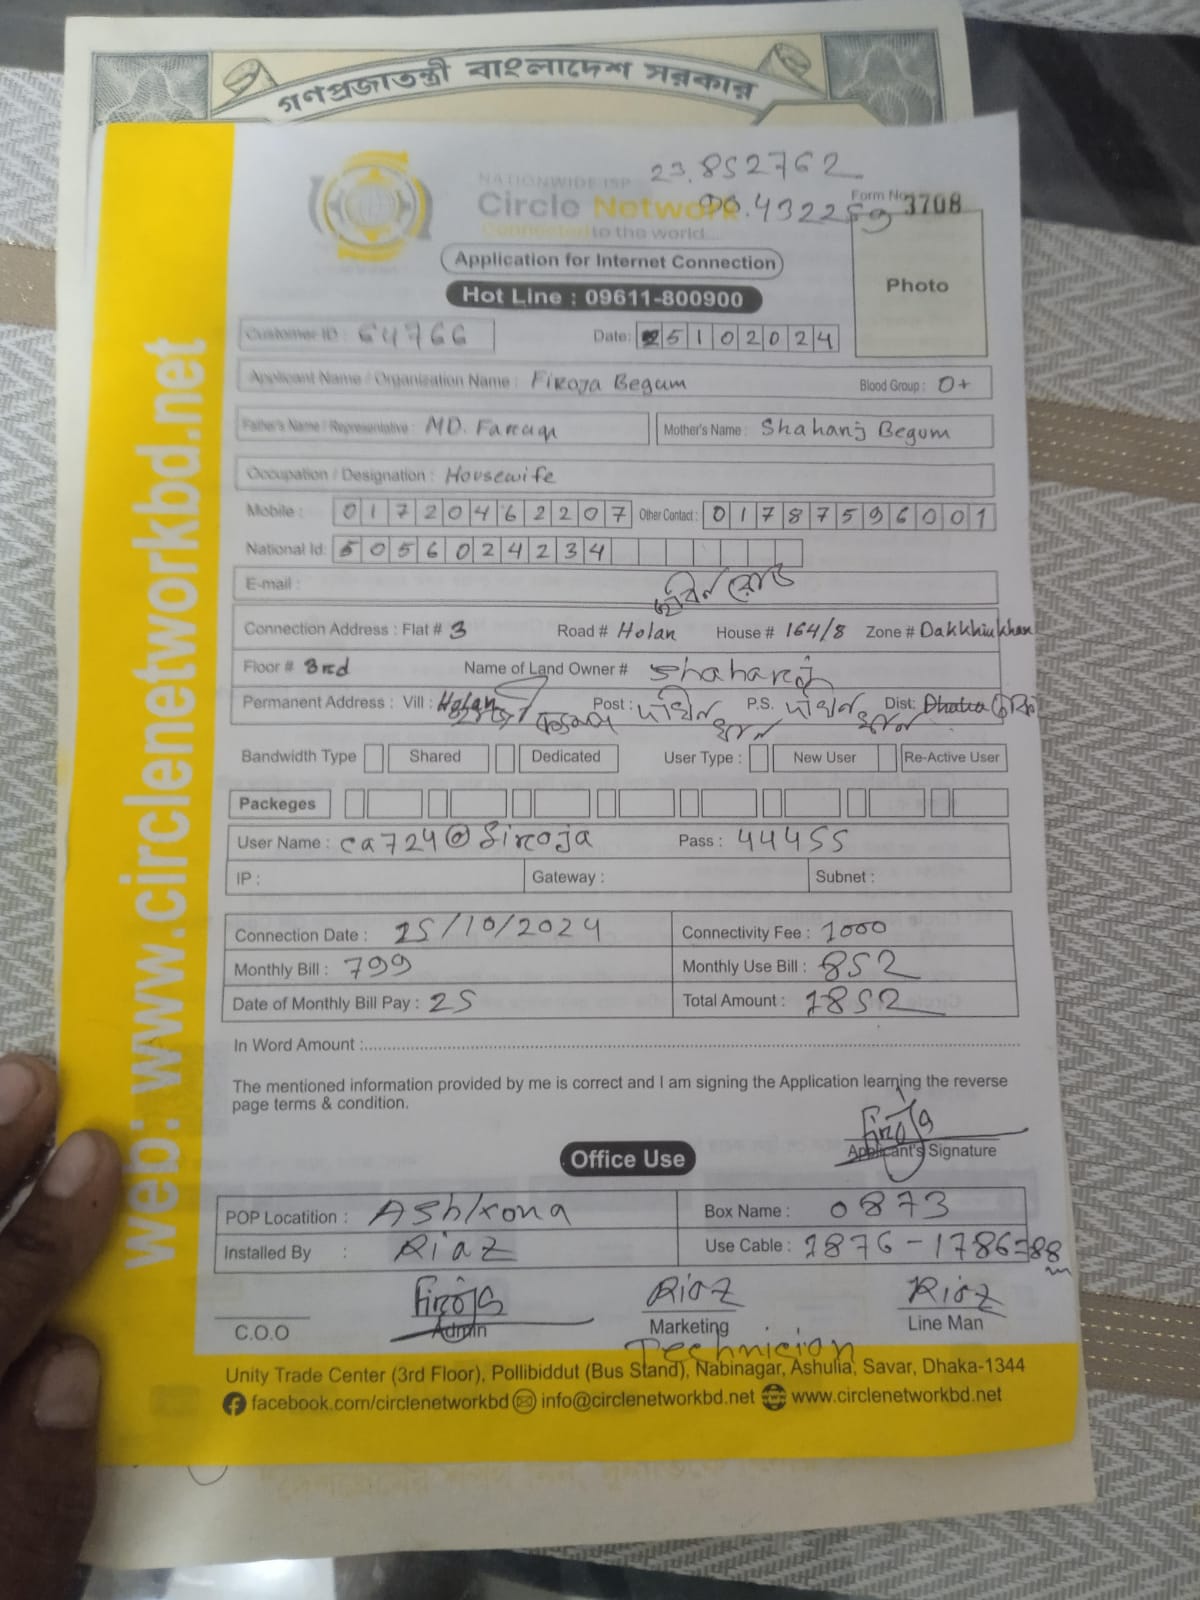 গণপ্রজাতন্ত্রী বাংলাদেশ সরকার
23.852762
90.432259
NATIONWIDE ISP
Circle Network
Connected to the world...
Form No. 3708
Photo
Application for Internet Connection
Hot Line : 09611-800900
Customer ID : 64766 Date: 25102024
Applicant Name / Organization Name : Firoja Begum Blood Group : O+
Father's Name / Representative : MD. Farruqn Mother's Name : Shahanj Begum
Occupation / Designation : Housewife
Mobile : 01720462207 Other Contact : 01787596001
National Id: 5056024234
E-mail :
Connection Address : Flat # 3 Road # Holan House # 164/8 Zone # Dakkhinkhan
Floor # 3rd Name of Land Owner # Shaharej
Permanent Address : Vill : Holan Post : দক্ষিন খান P.S. দক্ষিন খান Dist: Dhaka
Bandwidth Type Shared Dedicated User Type : New User Re-Active User
Packeges
User Name : ca724@firoja Pass : 44455
IP : Gateway : Subnet :
Connection Date : 25/10/2024 Connectivity Fee : 1000
Monthly Bill : 799 Monthly Use Bill : 852
Date of Monthly Bill Pay : 25 Total Amount : 1852
In Word Amount :
The mentioned information provided by me is correct and I am signing the Application learning the reverse
page terms & condition.
Firoja
Applicant's Signature
Office Use
POP Locatition : Ashkona Box Name : 0873
Installed By : Riaz Use Cable : 1876-1786=88m
Firoja Riaz Riaz
C.O.O Admin Marketing Line Man
Technician
Unity Trade Center (3rd Floor), Pollibiddut (Bus Stand), Nabinagar, Ashulia, Savar, Dhaka-1344
facebook.com/circlenetworkbd info@circlenetworkbd.net www.circlenetworkbd.net
web: www.circlenetworkbd.net